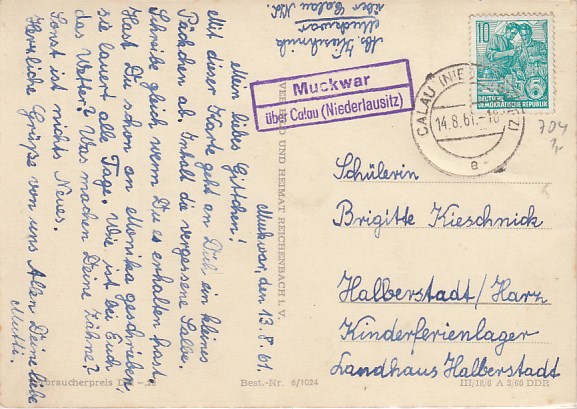 Abs. Kieschnick
Muckwar
über Calau N/L.
Muckwar
über Calau (Niederlausitz)
10
5
DEUTSCHE
DEMOKRATISCHE REPUBLIK
CALAU (NIEDERLAUSITZ)
14.8.61.-18
a
704
Muckwar, den 13.8.61.
Mein liebes Gittchen!
Mit dieser Karte geht an Dich ein kleines
Päckchen ab. Inhalt die vergessene Salbe.
Schreibe gleich wenn Du es erhalten hast.
Hast Du schon an Monika geschrieben,
sie lauert alle Tage. Wie ist bei Euch
das Wetter? Was machen Deine Zähne?
Sonst ist nichts Neues.
Herzliche Grüße von uns Allen Deine liebe
Mutti.
VERLAG BILD UND HEIMAT REICHENBACH i. V.
Schülerin
Brigitte Kieschnick
Halberstadt/Harz
Kinderferienlager
Landhaus Halberstadt
Verbraucherpreis DM
Best.-Nr. 6/1024
III/18/6 A 3/60 DDR